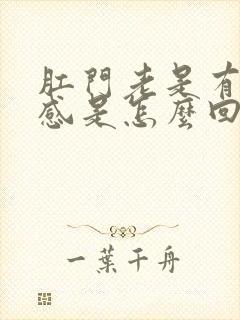 肛門老是有
感是怎麼回
一葉千舟